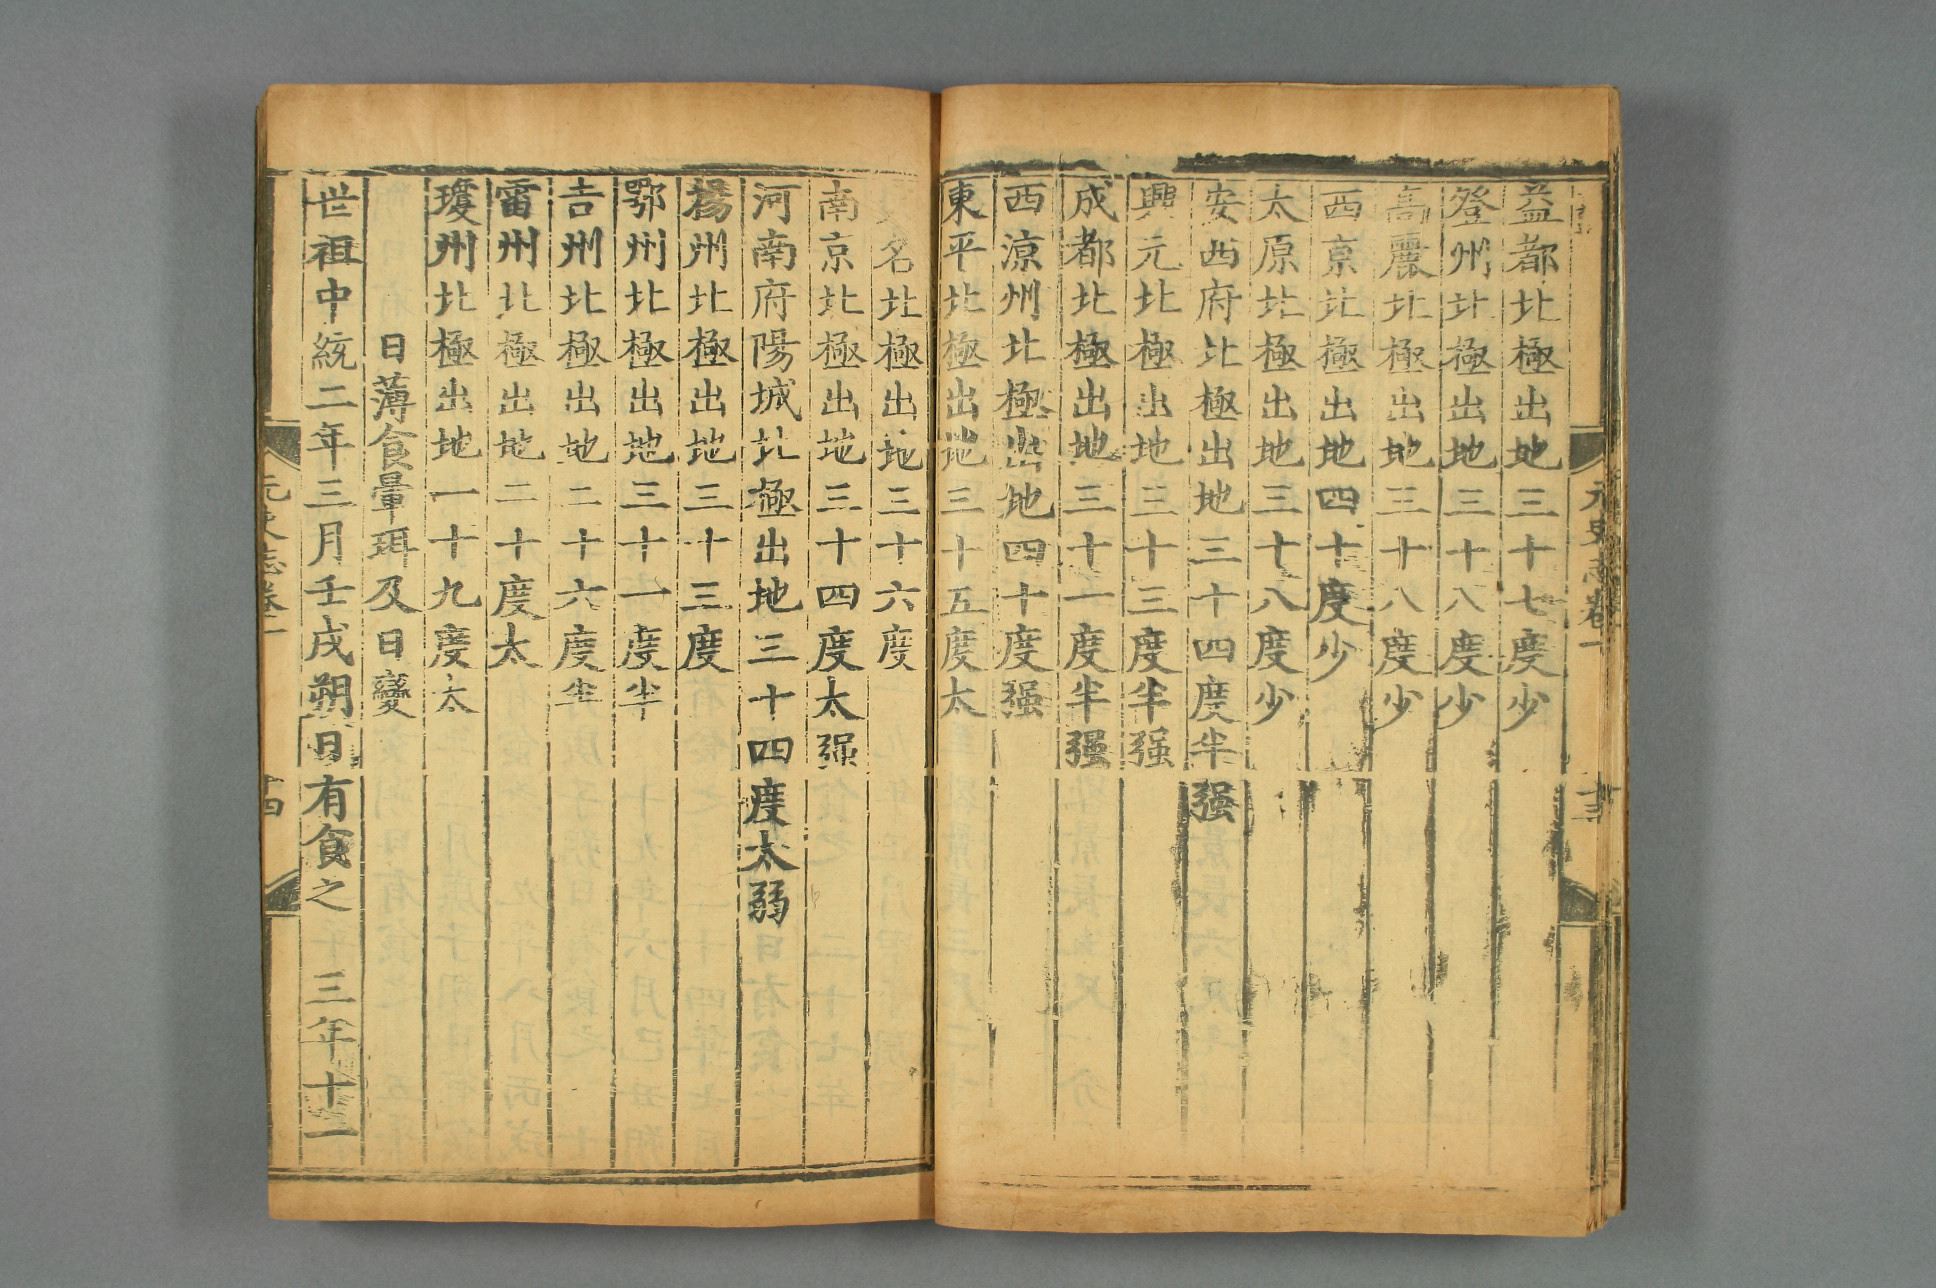 元史志卷一
十三
益都北極出地三十七度少
登州北極出地三十八度少
高麗北極出地三十八度少
西京北極出地四十度少
太原北極出地三十八度少
安西府北極出地三十四度半强
興元北極出地三十三度半强
成都北極出地三十一度半强
西涼州北極出地四十度强
東平北極出地三十五度太
名北極出地三十六度
南京北極出地三十四度太强
河南府陽城北極出地三十四度太弱
揚州北極出地三十三度
鄂州北極出地三十一度半
吉州北極出地二十六度半
雷州北極出地二十度太
瓊州北極出地一十九度太
日薄食暈珥及日變
世祖中統二年三月壬戌朔日有食之 三年十一
元史志卷一
十四